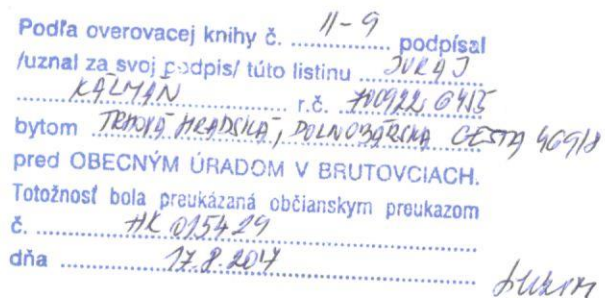 Podľa overovacej knihy č. 11-9 podpísal
/uznal za svoj podpis/ túto listinu JURAJ
KÁLMÁN r.č. 700922/6415
bytom TRHOVÁ HRADSKÁ, DOLNOBÁRSKA CESTA 469/8
pred OBECNÝM ÚRADOM V BRUTOVCIACH.
Totožnosť bola preukázaná občianskym preukazom
č. HK 015429
dňa 17.8.2017